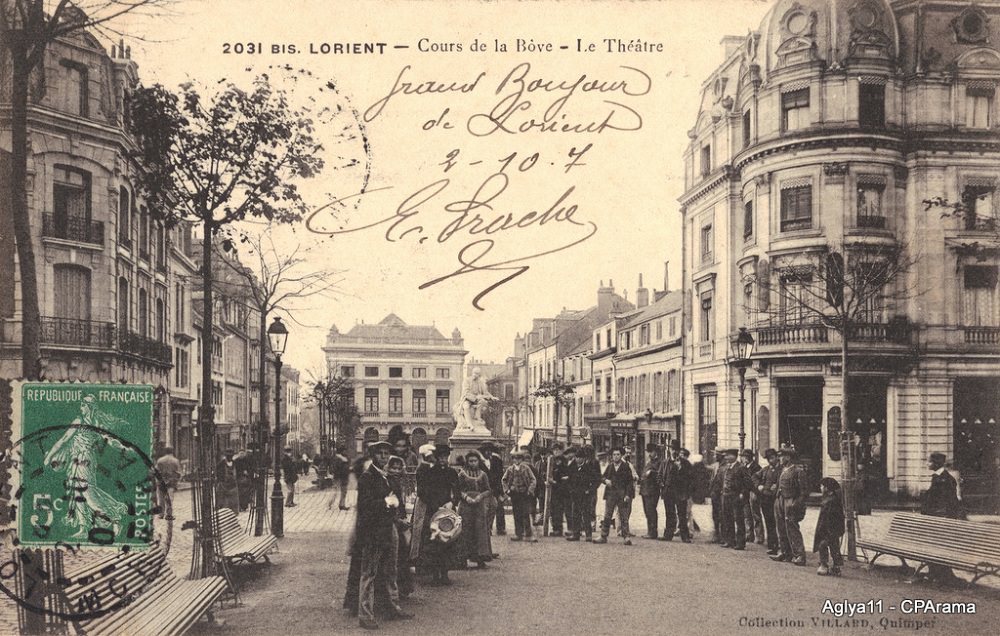 2031 BIS. LORIENT — Cours de la Bôve - Le Théâtre
Grand Bonjour
de Lorient
2-10.7
REPUBLIQUE FRANÇAISE
5c
POSTES
Aglya11 - CPArama
Collection VILLARD, Quimper